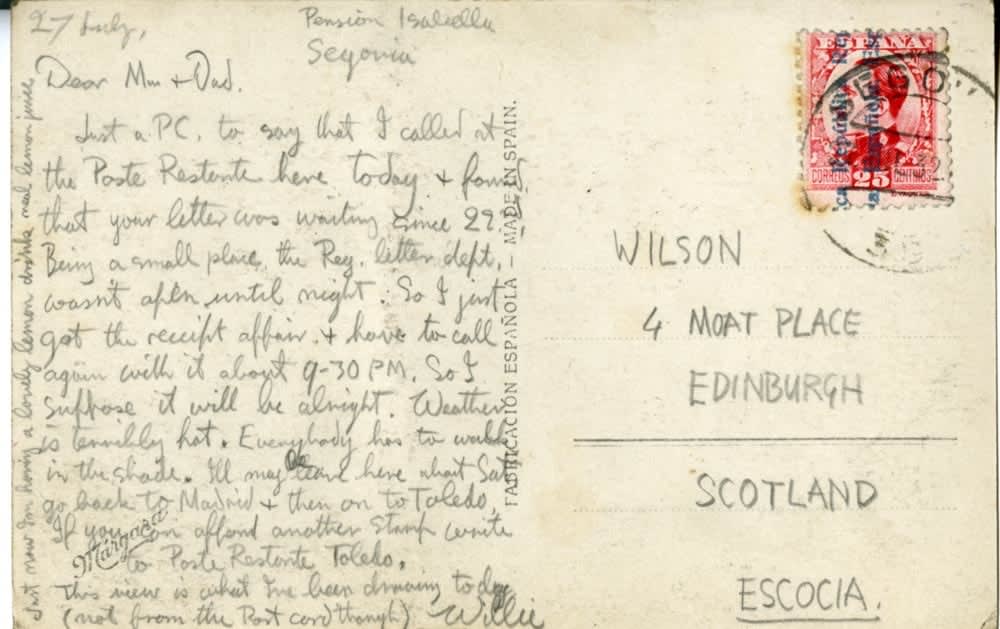 27 July,
Pension Isabella
Segovia
Dear Mum + Dad.
Just a PC. to say that I called at
the Poste Restante here today + found
that your letter was waiting since 22nd.
Being a small place, the Reg. letter dept.
wasn't open until night. So I just
got the receipt affair. + have to call
again with it about 9-30 PM. So I
suppose it will be alright. Weather
is terribly hot. Everybody has to walk
in the shade. I'll may leave here about Sat
go back to Madrid + then on to Toledo.
If you can afford another Stamp write
to Poste Restante Toledo.
This view is what I've been drawing today
(not from the Post card though) Willie
Just now I'm having a lovely lemon drink real lemon juice
FABRICACIÓN ESPAÑOLA - MADE IN SPAIN.
ESPAÑA
República
Española
CORREOS 25 CENTIMOS
WILSON
4 MOAT PLACE
EDINBURGH
SCOTLAND
ESCOCIA.